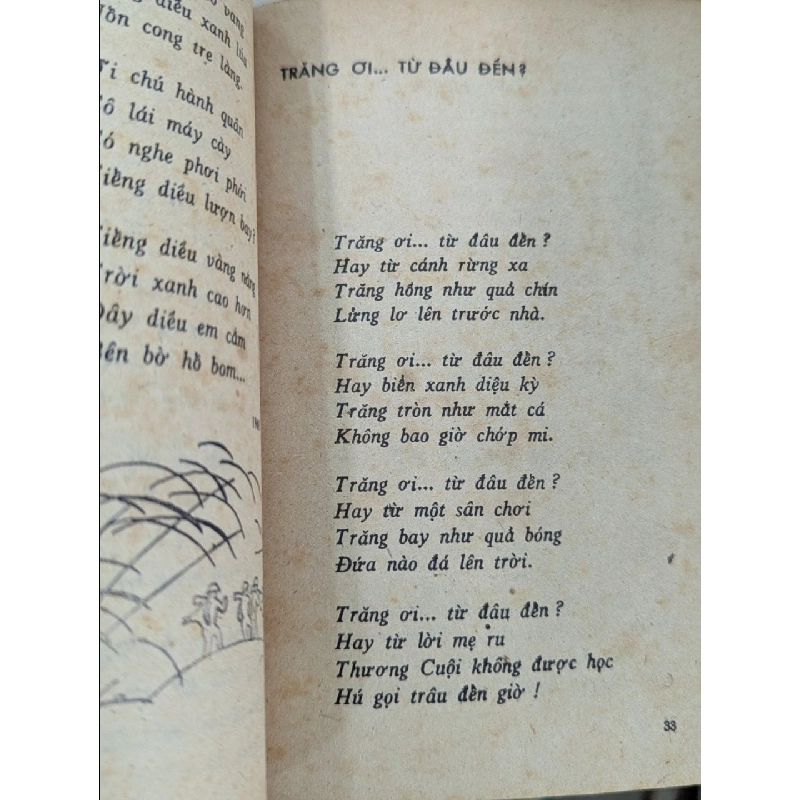 diều xanh lúa
cong tre làng.
chú hành quân
lái máy cày
nghe phơi phới
diều lượn bay?
diều vàng nắng
xanh cao hơn
diều em cắm
bờ hố bom...
TRĂNG ƠI... TỪ ĐÂU ĐẾN?
Trăng ơi... từ đâu đến?
Hay từ cánh rừng xa
Trăng hồng như quả chín
Lửng lơ lên trước nhà.
Trăng ơi... từ đâu đến?
Hay biển xanh diệu kỳ
Trăng tròn như mắt cá
Không bao giờ chớp mi.
Trăng ơi... từ đâu đến?
Hay từ một sân chơi
Trăng bay như quả bóng
Đứa nào đá lên trời.
Trăng ơi... từ đâu đến?
Hay từ lời mẹ ru
Thương Cuội không được học
Hú gọi trâu đến giờ !
33